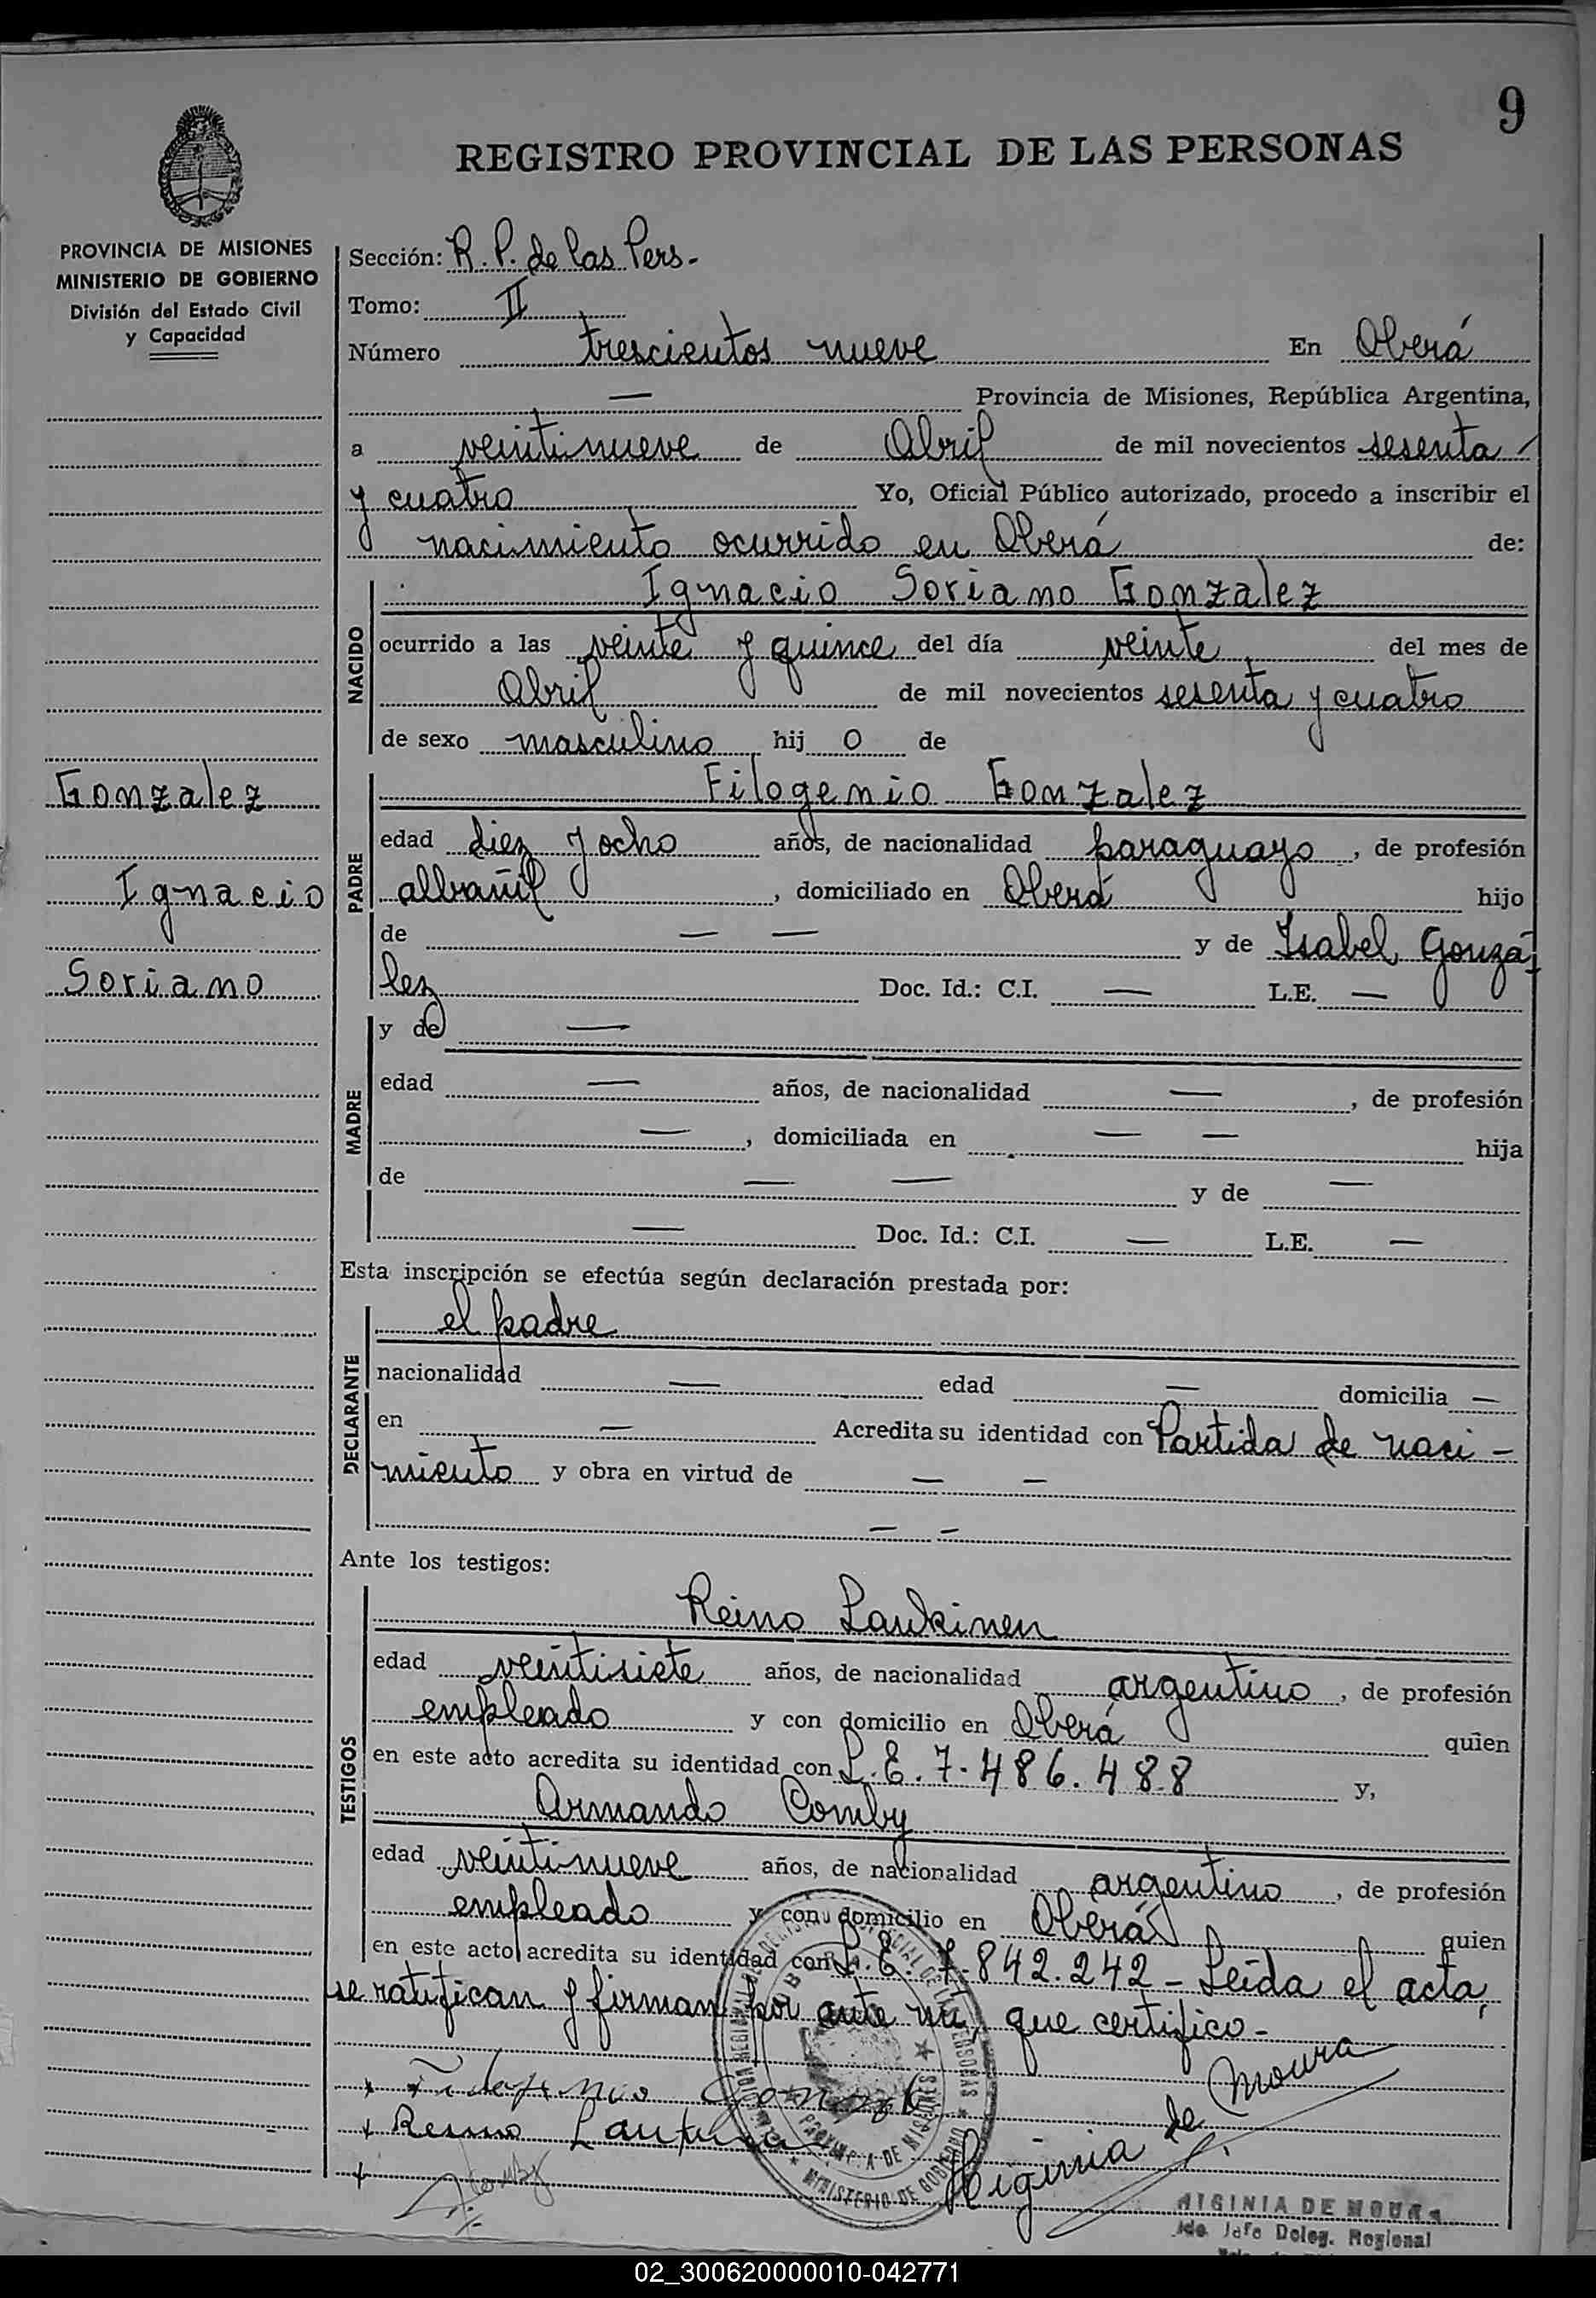 9
REGISTRO PROVINCIAL DE LAS PERSONAS
PROVINCIA DE MISIONES
MINISTERIO DE GOBIERNO
División del Estado Civil
y Capacidad
Sección: R. P. de las Pers.-
Tomo: II
Número trescientos nueve En Oberá
— Provincia de Misiones, República Argentina,
a veintinueve de Abril de mil novecientos sesenta
y cuatro Yo, Oficial Público autorizado, procedo a inscribir el
nacimiento ocurrido en Oberá de:
NACIDO
Ignacio Soriano Gonzalez
ocurrido a las veinte y quince del día veinte del mes de
Abril de mil novecientos sesenta y cuatro
de sexo masculino hij o de
Gonzalez
Ignacio
Soriano
PADRE
Filogenio Gonzalez
edad diez y ocho años, de nacionalidad paraguayo, de profesión
albañil, domiciliado en Oberá hijo
de — — y de Isabel Gonzá-
lez Doc. Id.: C.I. — L.E. —
MADRE
y de —
edad — años, de nacionalidad —, de profesión
—, domiciliada en — — hija
de — — y de —
— Doc. Id.: C.I. — L.E. —
Esta inscripción se efectúa según declaración prestada por:
DECLARANTE
el padre
nacionalidad — edad — domicilia —
en — Acredita su identidad con Partida de naci-
miento y obra en virtud de — —
— —
Ante los testigos:
TESTIGOS
Reino Laukinen
edad veintisiete años, de nacionalidad argentino, de profesión
empleado y con domicilio en Oberá quien
en este acto acredita su identidad con L.E. 7.486.488 y,
Armando Comby
edad veintinueve años, de nacionalidad argentino, de profesión
empleado y con domicilio en Oberá quien
en este acto acredita su identidad con L.E. 7.842.242 - Leída el acta,
se ratifican y firman por ante mí, que certifico -
Gonzalez
Reino
Higinia de Moura
PROVINCIA DE MISIONES
MINISTERIO DE GOBIERNO
HIGINIA DE MOURA
Jefe Deleg. Regional
02_300620000010-042771